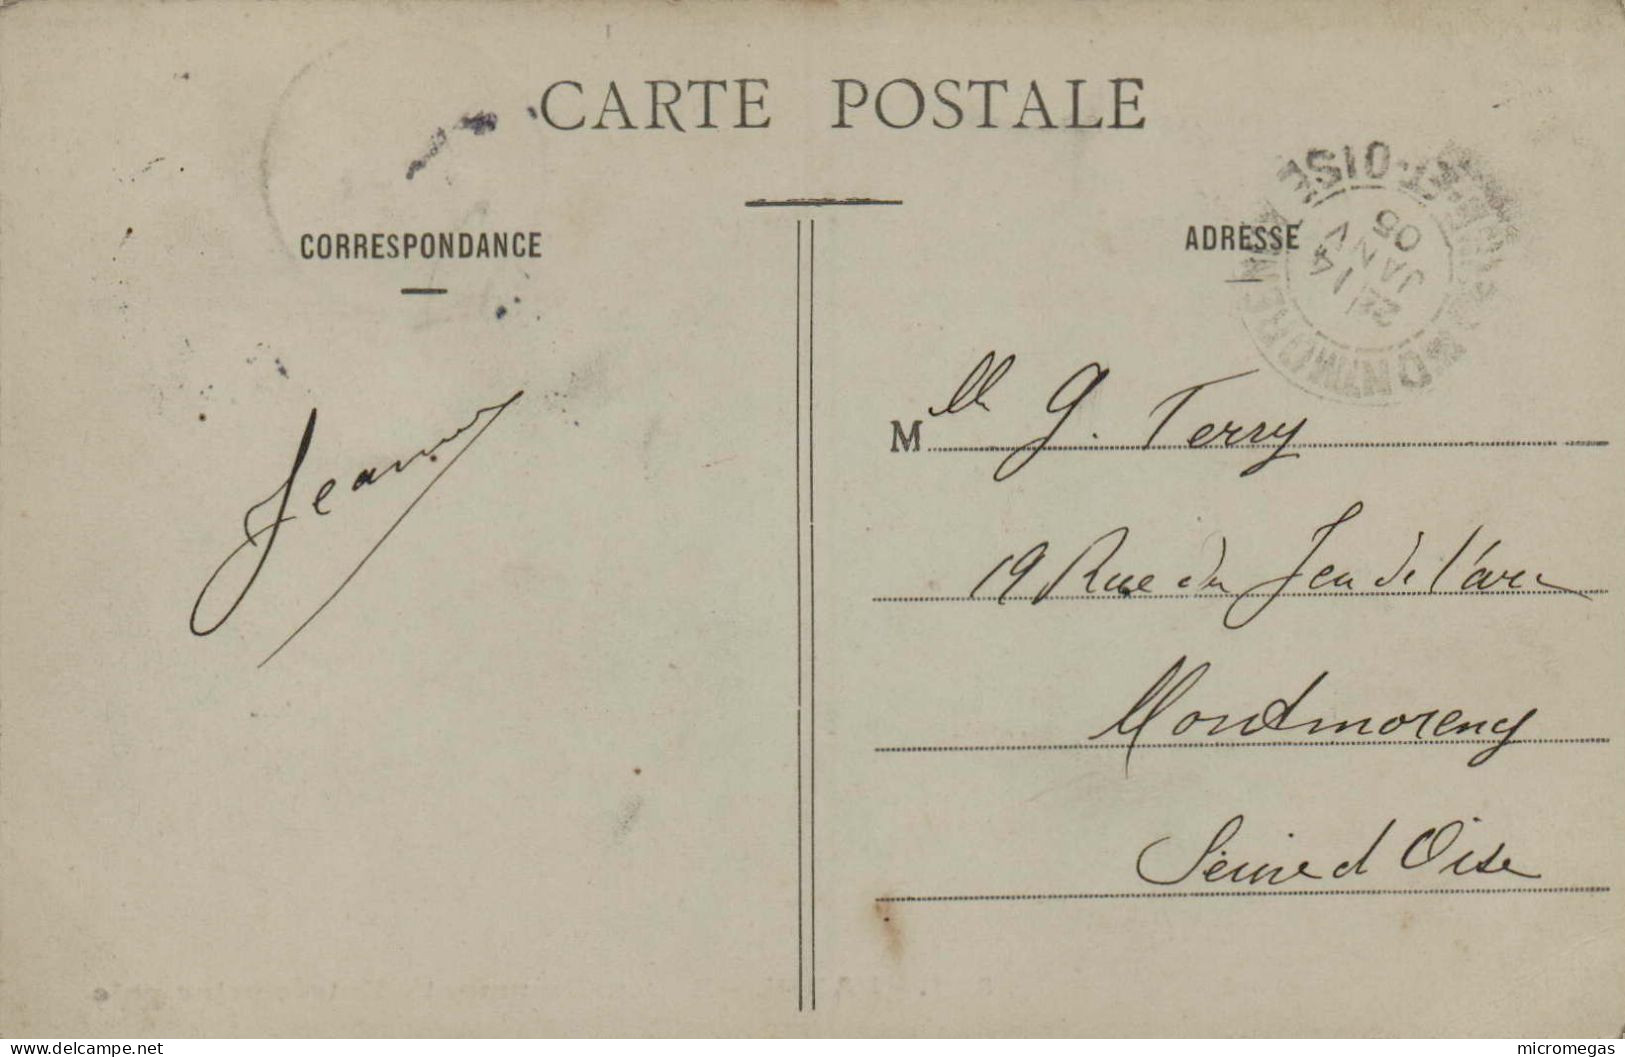 CARTE POSTALE
CORRESPONDANCE
ADRESSE
MONTMORENCY
SEINE-ET-OISE
14
JANV
05
Mlle G. Terry
19 Rue du Jeu de l'arc
Montmorency
Seine et Oise
Jeanne
www.delcampe.net
micromegas